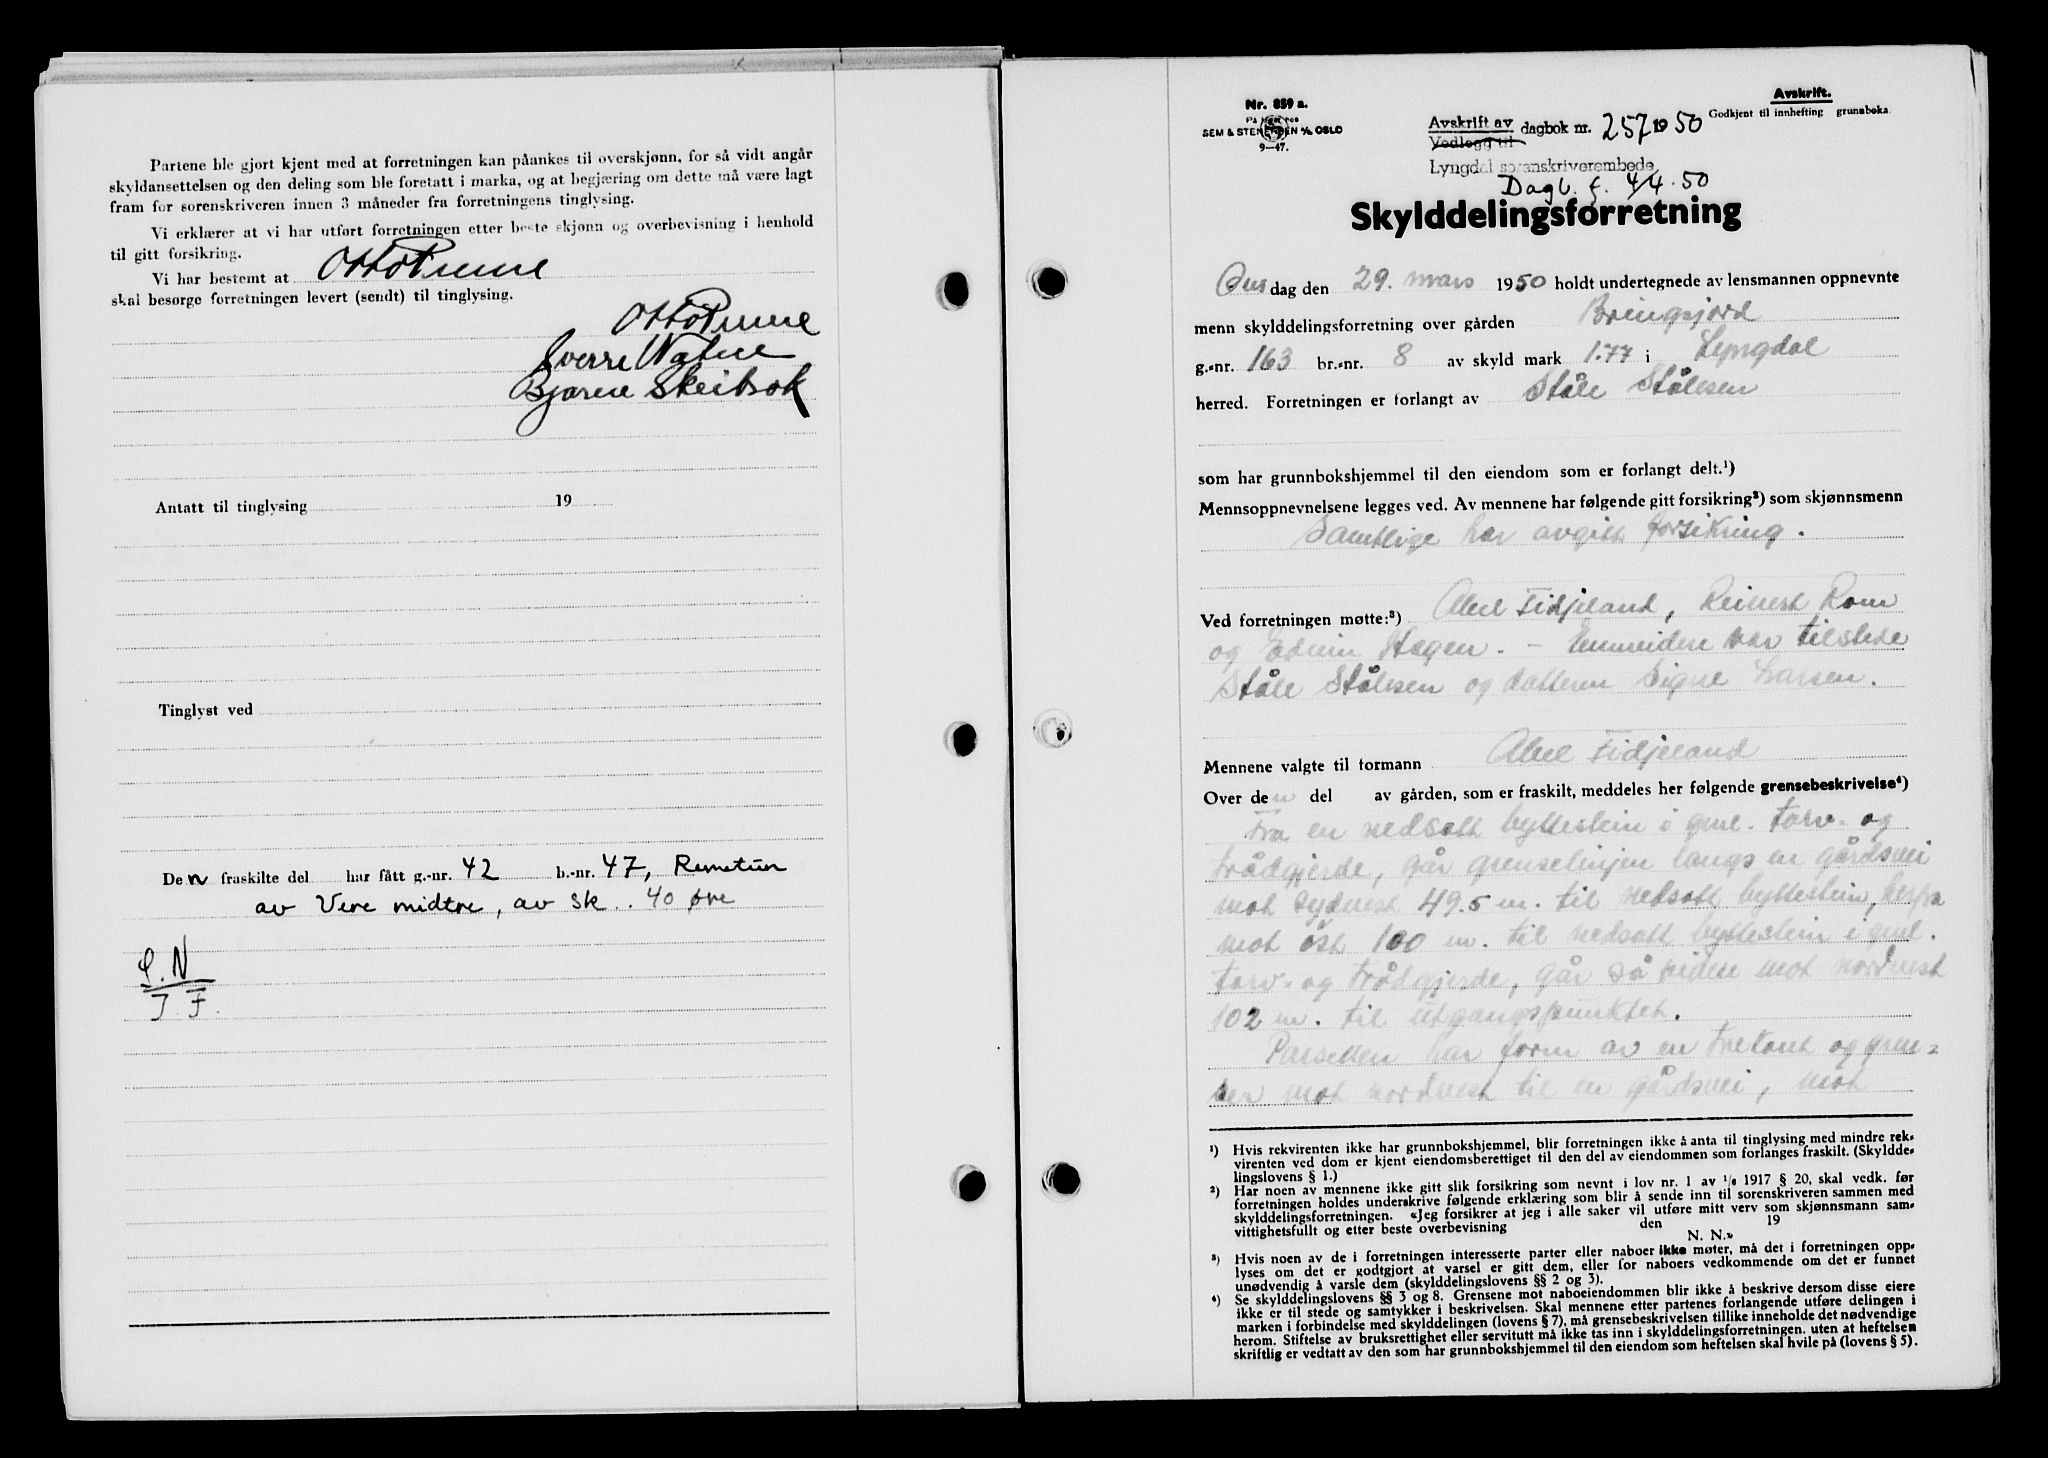 Partene ble gjort kjent med at forretningen kan påankes til overskjønn, for så vidt angår
skyldansettelsen og den deling som ble foretatt i marka, og at begjæring om dette må være lagt
fram for sorenskriveren innen 3 måneder fra forretningens tinglysing.
Vi erklærer at vi har utført forretningen etter beste skjønn og overbevisning i henhold
til gitt forsikring.
Vi har bestemt at Otto
skal besørge forretningen levert (sendt) til tinglysing.
Otto
Sverre
Bjarne
Antatt til tinglysing 19
Tinglyst ved
Den fraskilte del har fått g.-nr. 42 b.-nr. 47, Rometun
av Vere midtre, av sk.. 40 øre
S. N
J F.
Avskrift.
Nr. 859 a.
SEM & STENERSEN A/S OSLO
9—47.
Avskrift av
Vedlegg til
dagbok nr. 257 1950
Godkjent til innhefting grunnboka.
Lyngdal sorenskriverembede
Dagb. f. 4/4.50
Skylddelingsforretning
Onsdag den 29. mars 1950 holdt undertegnede av lensmannen oppnevnte
menn skylddelingsforretning over gården Bringsjord
g.-nr. 163 br.-nr. 8 av skyld mark 1.77 i Lyngdal
herred. Forretningen er forlangt av Ståle Stålesen
som har grunnbokshjemmel til den eiendom som er forlangt delt.¹)
Mennsoppnevnelsene legges ved. Av mennene har følgende gitt forsikring²) som skjønnsmenn
Samtlige har avgitt forsikring.
Ved forretningen møtte:³) Abel Fidjeland, Reinert Rom
og Edvin Hagen. – Ennvidere var tilstede
Ståle Stålesen og datteren Signe Larsen.
Mennene valgte til formann Abel Fidjeland
Over den del av gården, som er fraskilt, meddeles her følgende grensebeskrivelse⁴)
Fra en nedsatt byttestein i gml. torv- og
trådgjerde, går grenselinjen langs en gårdsvei
mot sydvest 49.5 m. til nedsatt byttestein, herfra
mot øst 100 m. til nedsatt byttestein i gml.
torv- og trådgjerde, går så videre mot nordvest
102 m. til utgangspunktet.
Parsellen har form av en trekant og gren-
ser mot nordvest til en gårdsvei, mot
¹) Hvis rekvirenten ikke har grunnbokshjemmel, blir forretningen ikke å anta til tinglysing med mindre rek-
virenten ved dom er kjent eiendomsberettiget til den del av eiendommen som forlanges fraskilt. (Skyldde-
lingslovens § 1.)
²) Har noen av mennene ikke gitt slik forsikring som nevnt i lov nr. 1 av 1/6 1917 § 20, skal vedk. før
forretningen holdes underskrive følgende erklæring som blir å sende inn til sorenskriveren sammen med
skylddelingsforretningen. «Jeg forsikrer at jeg i alle saker vil utføre mitt verv som skjønnsmann sam-
vittighetsfullt og etter beste overbevisning den 19
N. N.»
³) Hvis noen av de i forretningen interesserte parter eller naboer ikke møter, må det i forretningen opp-
lyses om det er godtgjort at varsel er gitt dem, eller for naboers vedkommende om det er funnet
unødvendig å varsle dem (skylddelingslovens §§ 2 og 3).
⁴) Se skylddelingslovens §§ 3 og 8. Grensene mot naboeiendommen blir ikke å beskrive dersom disse eiere
ikke er til stede og samtykker i beskrivelsen. Skal mennene etter partenes forlangende utføre delingen i
marken i forbindelse med skylddelingen (lovens § 7), må grensebeskrivelsen tillike inneholde det nødvendige
herom. Stiftelse av bruksrettighet eller servitutt må ikke tas inn i skylddelingsforretningen. uten at heftelsen
skriftlig er vedtatt av den som har grunnbokshjemmel til den eiendom som heftelsen skal hvile på (lovens § 5).